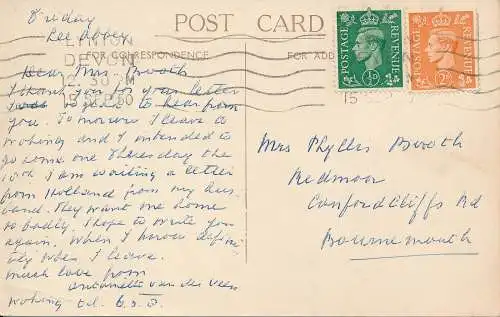 Friday
Lee Abbey
POST CARD
FOR CORRESPONDENCE
FOR ADD
LYNTON
DEVON
15 SEP 50
POSTAGE REVENUE
POSTAGE REVENUE
15
Dear Mrs. Booth
I thank you for your letter
I was so glad to hear from
you. Tomorrow I leave to
Woking and I intended to
go home on Thursday the
I am waiting a letter
from Holland from my hus
band. They want me home
so badly. I hope to write you
again, when I know defini
tely when I leave.
much love from
Antoinette van der Veen
Woking tel.
Mrs Phyllis Booth
Redmoor
Canford Cliffs Rd
Bournemouth